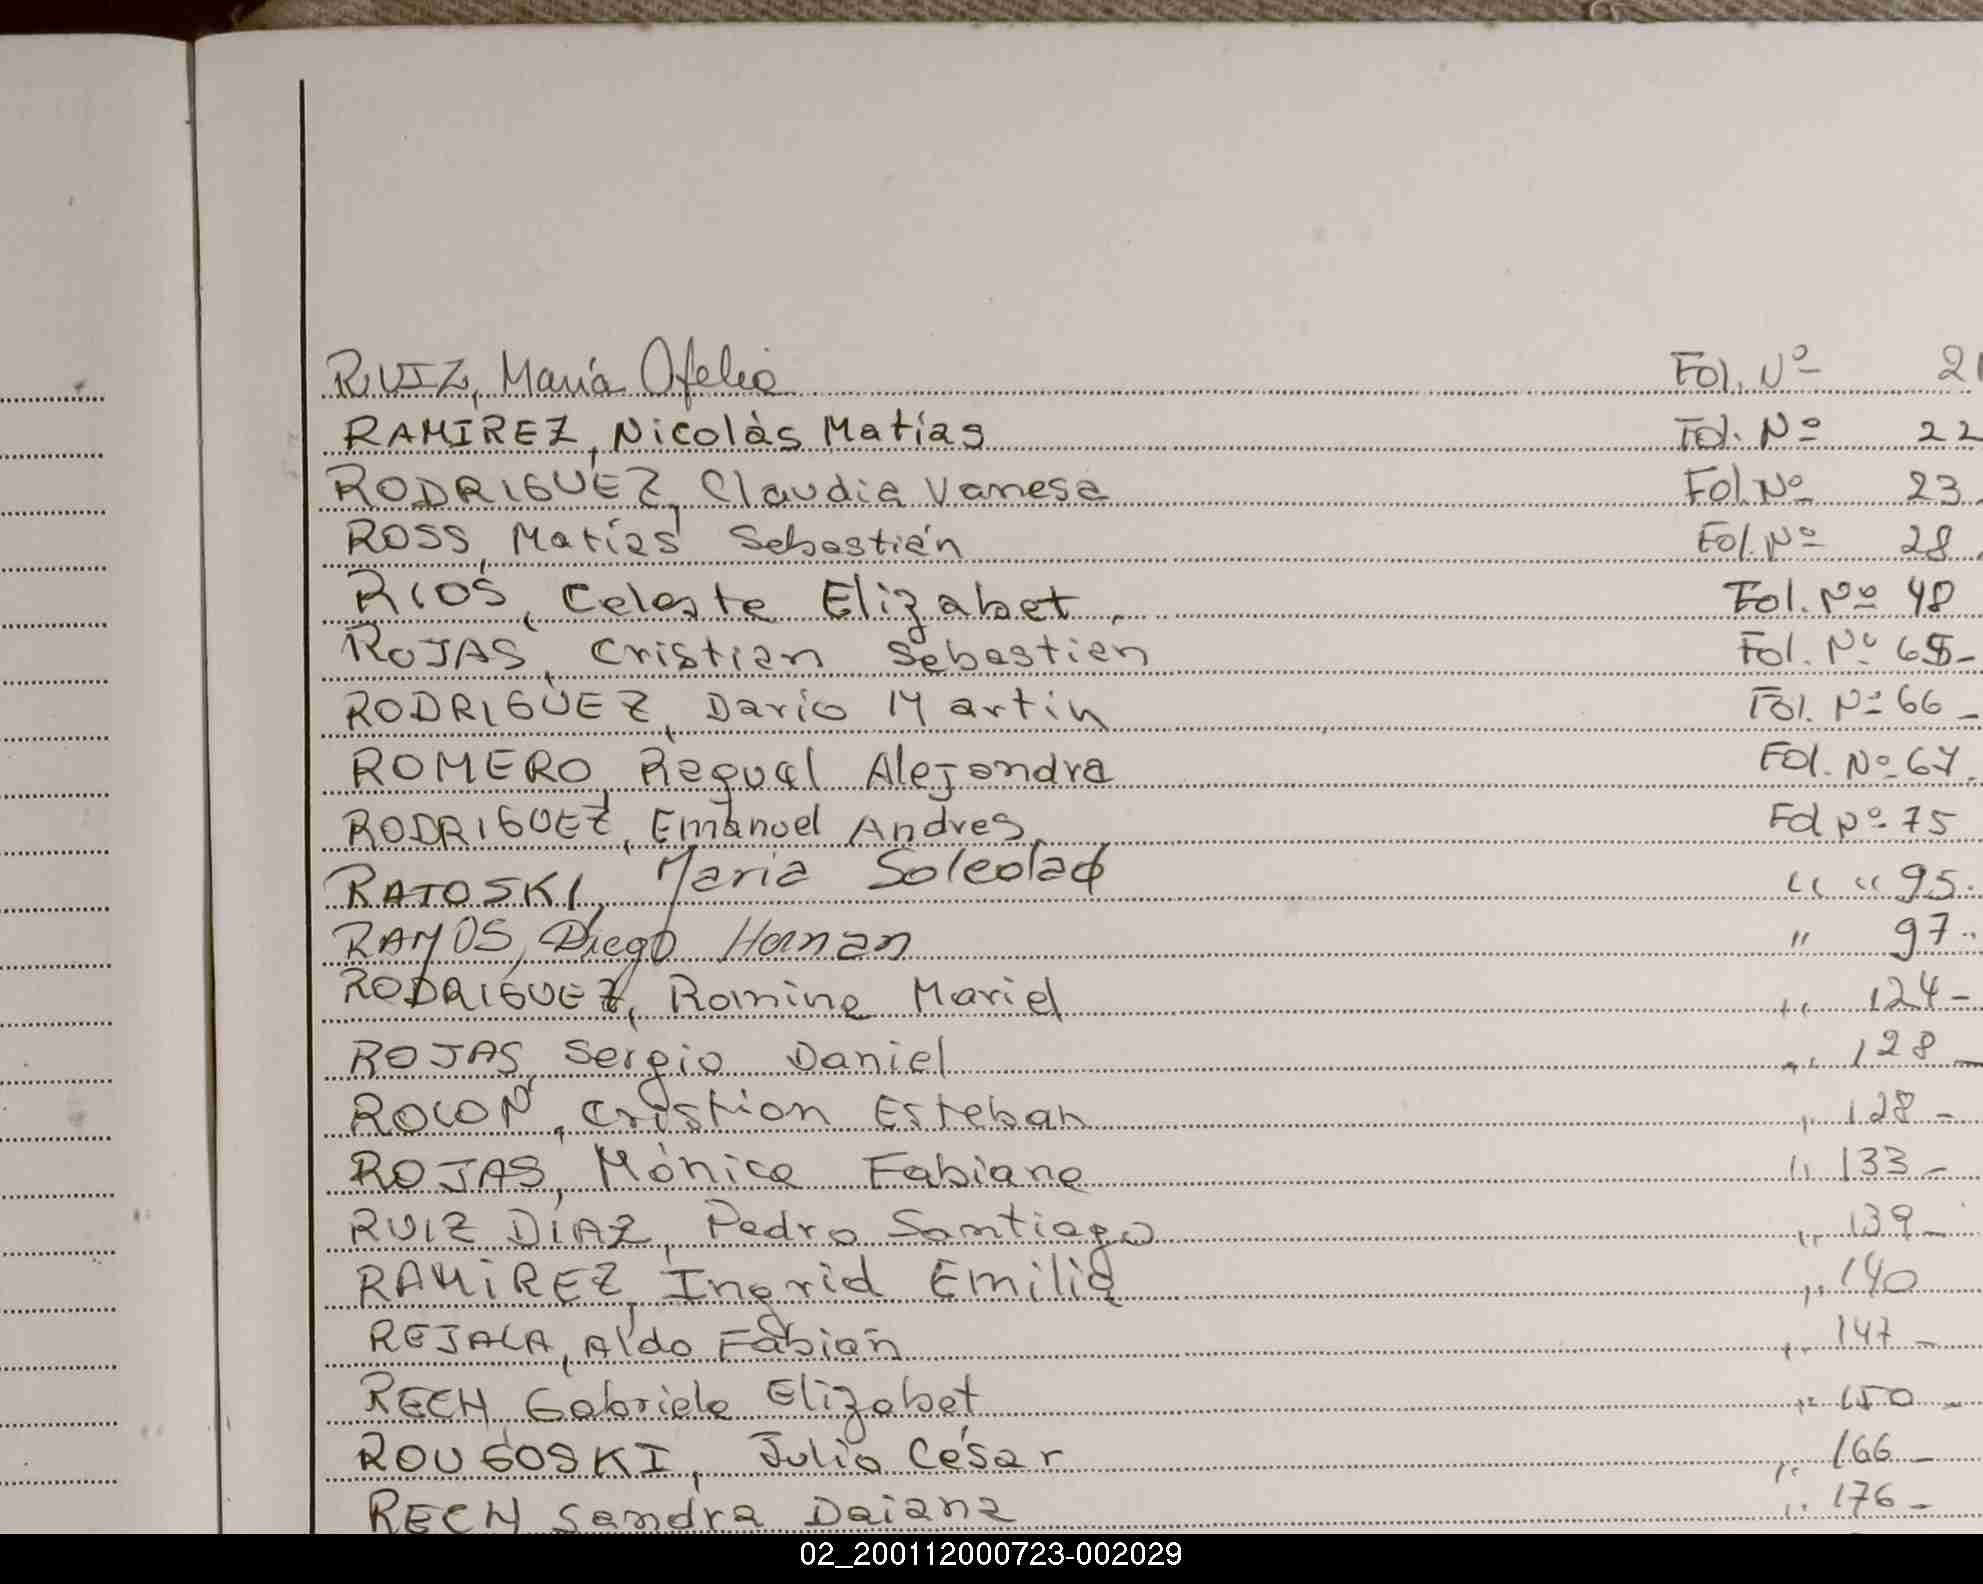 RUIZ, María Ofelia Fol. Nº 21
RAMIREZ, Nicolás Matías Fol. Nº 22
RODRIGUEZ, Claudia Vanesa Fol. Nº 23
ROSS, Matías Sebastián Fol. Nº 28
RIOS, Celeste Elizabet Fol. Nº 48
ROJAS, Cristian Sebastian Fol. Nº 65-
RODRIGUEZ, Dario Martin Fol. Nº 66-
ROMERO, Requel Alejandra Fol. Nº 67
RODRIGUEZ, Emanuel Andres Fol Nº 75
RATOSKI, Maria Soledad " " 95.
RAMOS, Diego Hernan " 97..
RODRIGUEZ, Romina Mariel " 124-
ROJAS, Sergio Daniel " 128-
ROLON, Cristian Esteban " 128-
ROJAS, Mónica Fabiana " 133-
RUIZ DÍAZ, Pedro Santiago " 139-
RAMIREZ, Ingrid Emilia " 140
REJALA, Aldo Fabián " 147-
RECH, Gabriela Elizabet " 150-
ROUGOSKI, Julio César " 166-
RECH Sandra Daiana " 176-
02_200112000723-002029